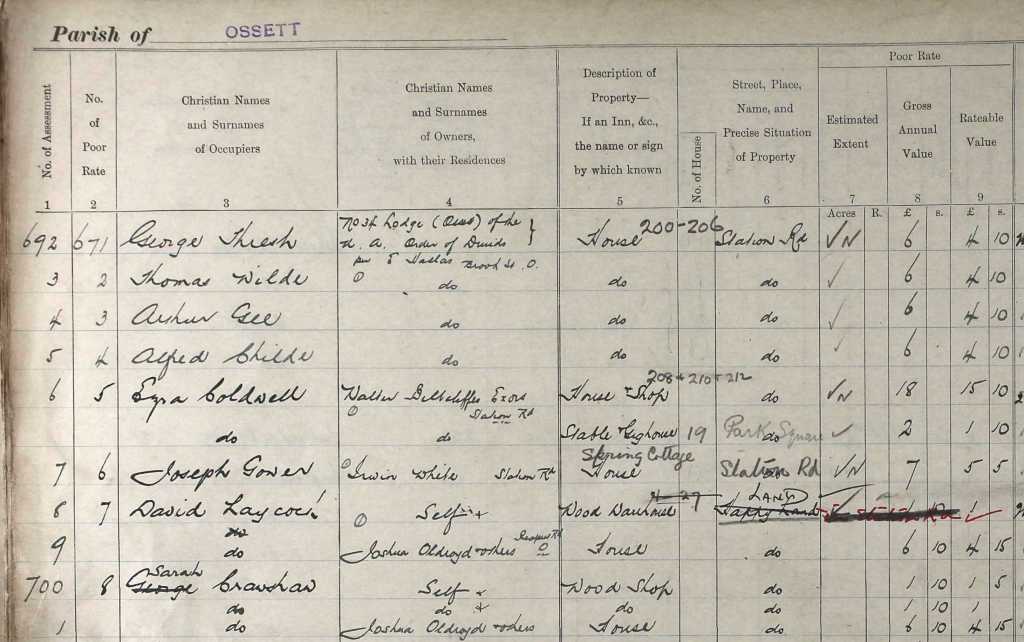 Parish of OSSETT
Poor Rate
No. of Assessment | No. of Poor Rate | Christian Names and Surnames of Occupiers | Christian Names and Surnames of Owners, with their Residences | Description of Property— If an Inn, &c., the name or sign by which known | No. of House | Street, Place, Name, and Precise Situation of Property | Estimated Extent | Gross Annual Value | Rateable Value
1 2 3 4 5 6 7 8 9
Acres R. £ s. £ s.
692 671 George Thresh Lodge (Oss) of the A. Order of Druids House 200-206 Station Rd ✓N 6 4 10
3 2 Thomas Wilde do do do ✓ 6 4 10
4 3 Arthur Gee do do do ✓ 6 4 10
5 4 Alfred Childe do do do ✓ 6 4 10
208 + 210 + 212
6 5 Ezra Coldwell Walter Exors Station Rd House & Shop do ✓N 18 15 10
do do Stable 19 Park Square do ✓ 2 1 10
Spring Cottage
7 6 Joseph Gower Irwin White Station Rd House Station Rd ✓N 7 5 5
LAND
8 7 David Laycock Self Wood Warehouse Happy Land
9 do Joshua Oldroyd & others House do 6 10 4 15
Sarah
700 8 George Crawshaw Self Wood Shop do 1 10 1 5
do do do do 1 10 1
1 do Joshua Oldroyd & others House do 6 10 4 15